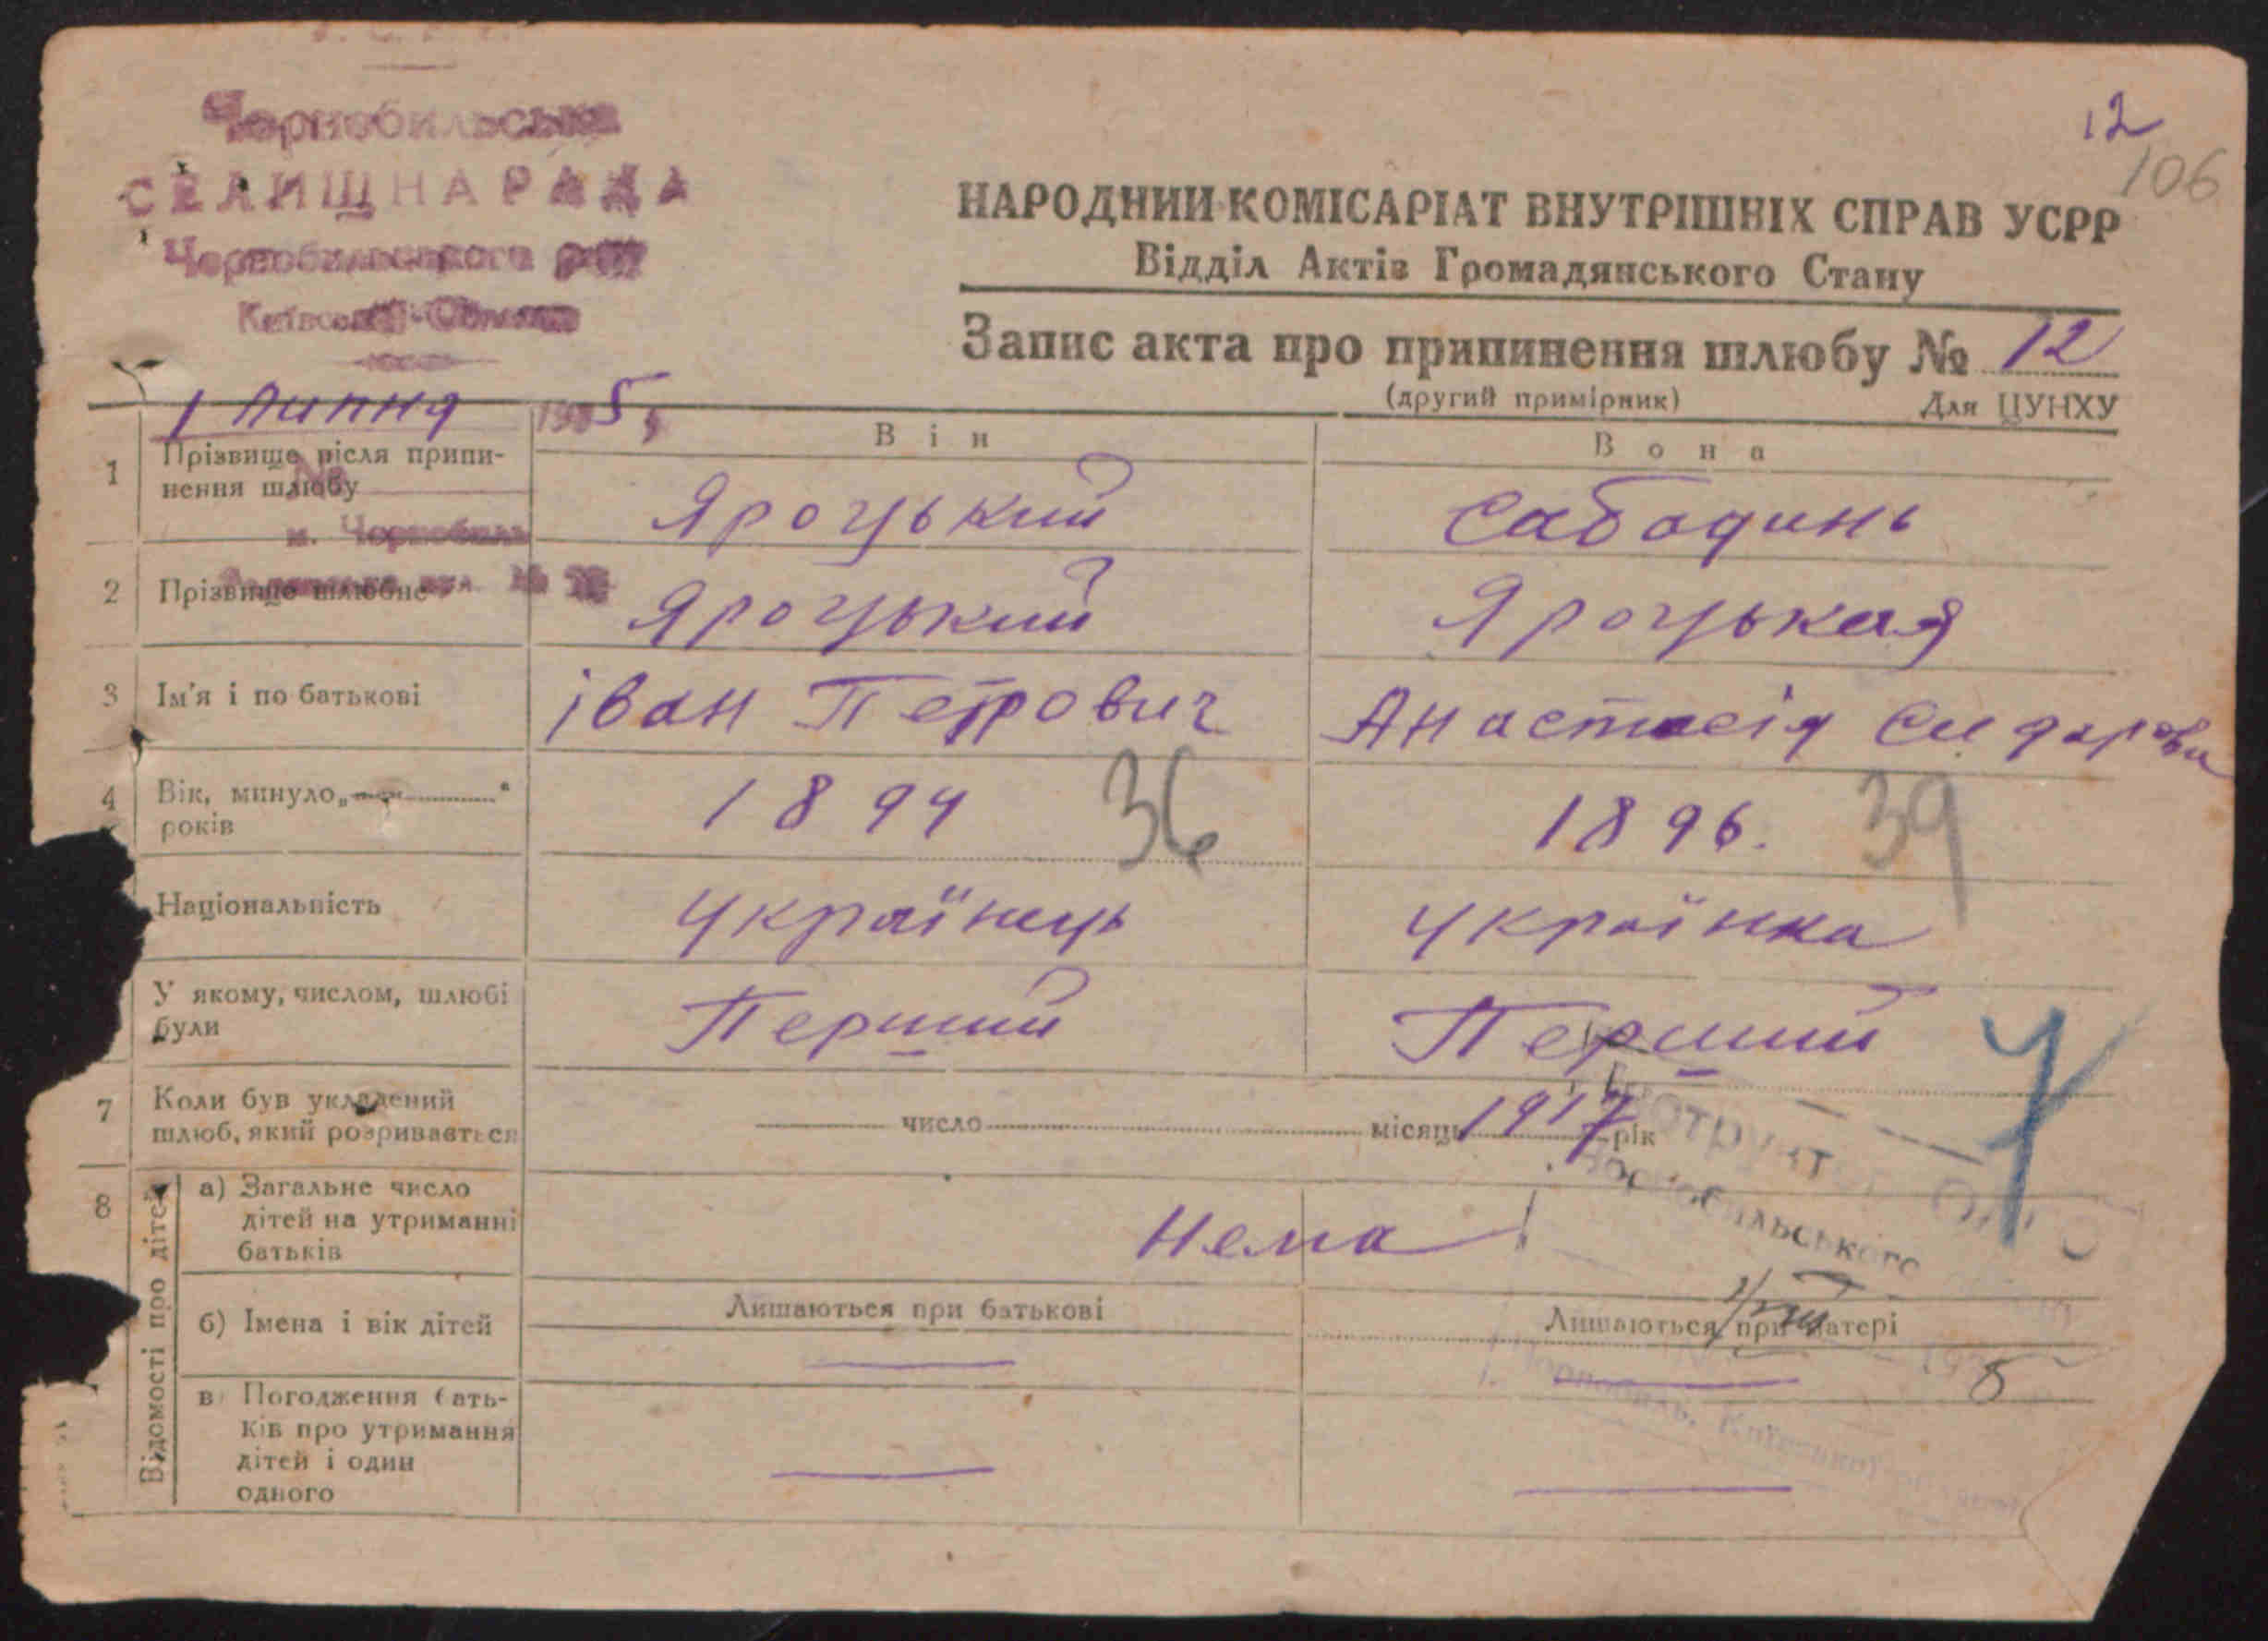 Чорнобильська
СЕЛИЩНА РАДА
Чорнобильського
Київської Області
1 липня 1935
№
м. Чорнобиль
12
106
НАРОДНИЙ КОМІСАРІАТ ВНУТРІШНІХ СПРАВ УСРР
Відділ Актів Громадянського Стану
Запис акта про припинення шлюбу № 12
(другий примірник) Для ЦУНХУ
Він Вона
1 Прізвище після припи-
нення шлюбу Яроцький Сабадинь
2 Прізвище шлюбне Яроцький Яроцькая
3 Ім'я і по батькові Іван Петрович Анастасія Сидаровна
4 Вік, минуло „ “
років 1894 36 1896. 39
Національність Українець Українка
У якому, числом, шлюбі
були Перший Перший
7 Коли був укладений
шлюб, який розривається число місяць 1917 рік
8 Відомості про дітей
а) Загальне число
дітей на утриманні
батьків Нема
б) Імена і вік дітей Лишаються при батькові Лишаються при матері
в) Погодження бать-
ків про утримання
дітей і один
одного
Чорнобильського
8
Чорнобиль, Київської